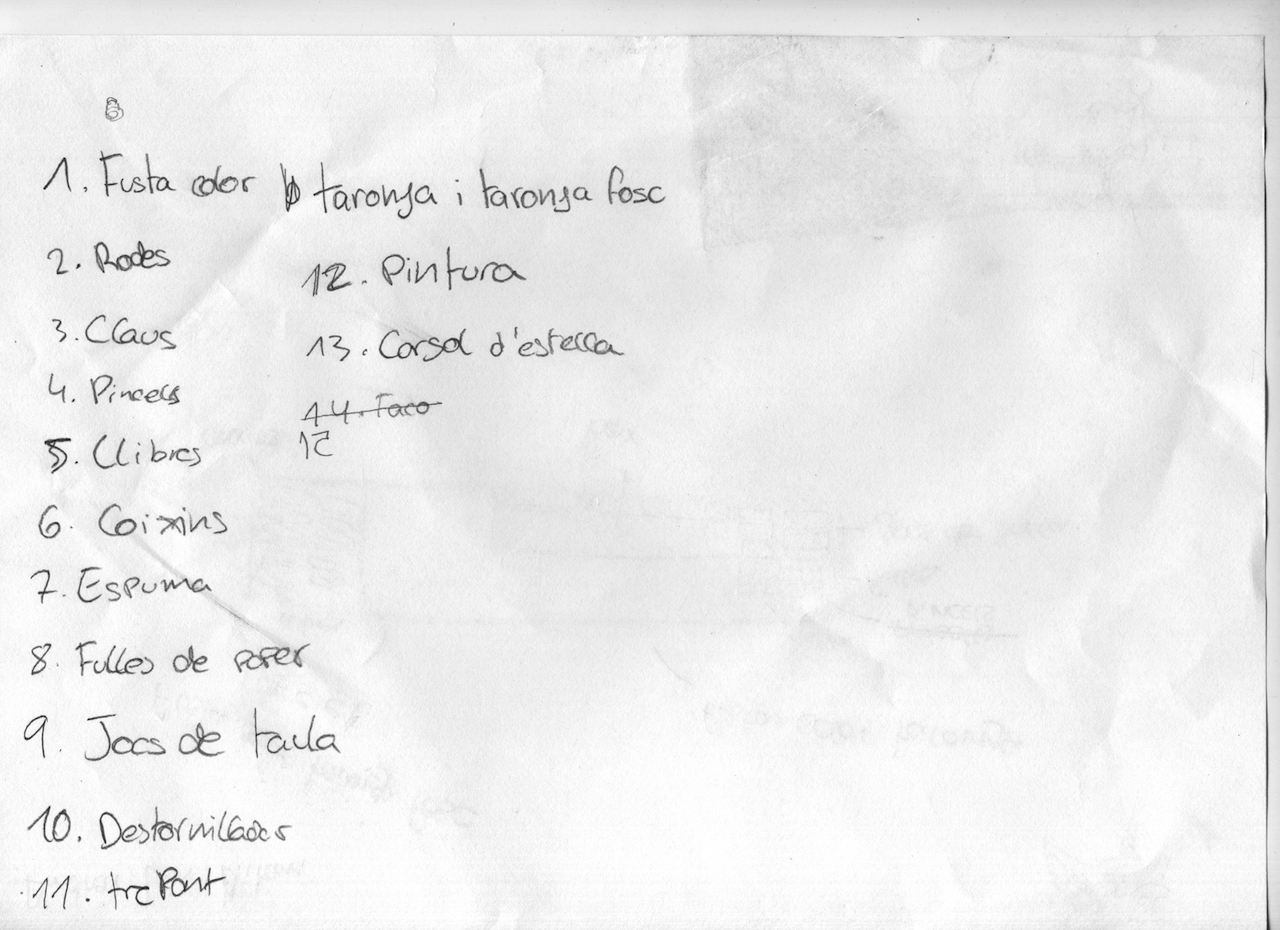 1. Fusta color taronja i taronja fosc
2. Rodes
3. Claus
4. Pincells
5. Llibres
6. Coixins
7. Espuma
8. Fulles de paper
9. Jocs de taula
10. Destornillador
11. trepant
12. Pintura
13. Corsol d'estella
14. Taco
15